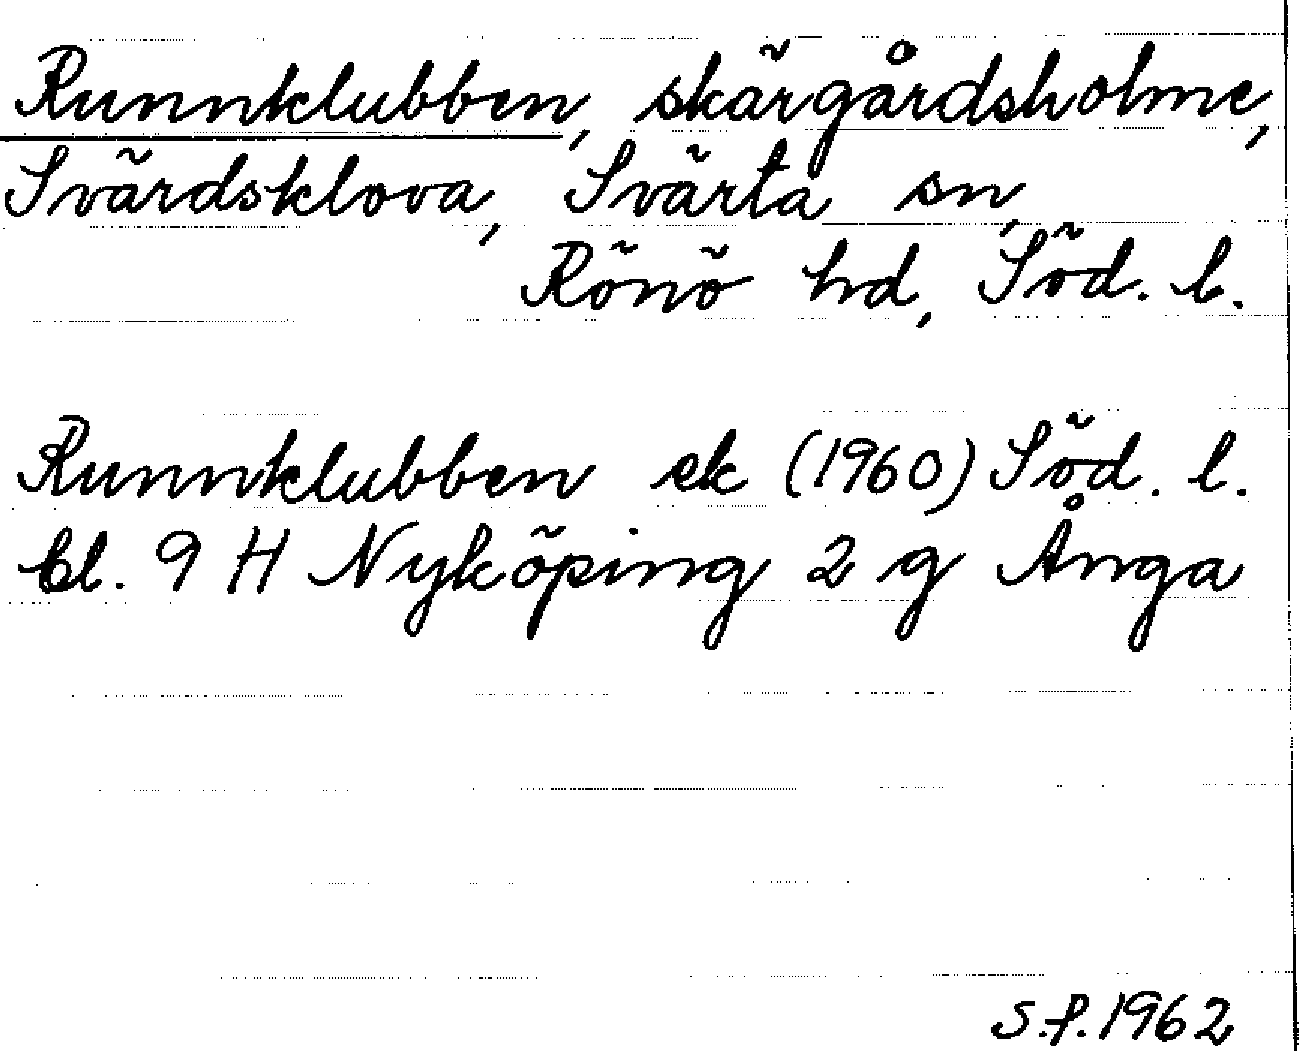 Runnklubben, skärgårdsholme,
Svärdsklova, Svärta sn,
Rönö hd, Söd. l.
Runnklubben ek (1960) Söd. l.
bl. 9 H Nyköping 2 g Ånga
S.f. 1962